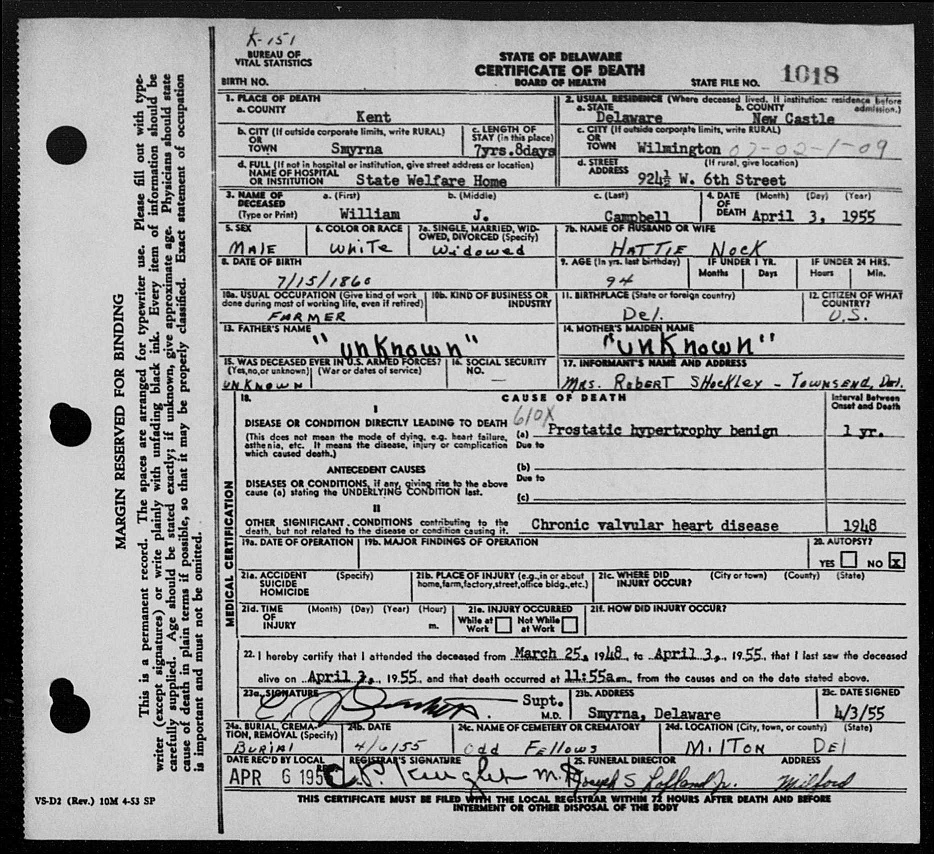 K-151
BUREAU OF
VITAL STATISTICS
STATE OF DELAWARE
CERTIFICATE OF DEATH
BOARD OF HEALTH
BIRTH NO.
STATE FILE NO. 1018
1. PLACE OF DEATH
a. COUNTY
Kent
2. USUAL RESIDENCE (Where deceased lived. If institution: residence before admission.)
a. STATE b. COUNTY
Delaware New Castle
b. CITY (If outside corporate limits, write RURAL)
OR
TOWN Smyrna
c. LENGTH OF
STAY (in this place)
7yrs.8days
c. CITY (If outside corporate limits, write RURAL)
OR
TOWN Wilmington 07-02-1-09
d. FULL (If not in hospital or institution, give street address or location)
NAME OF HOSPITAL
OR INSTITUTION State Welfare Home
d. STREET (If rural, give location)
ADDRESS 924½ W. 6th Street
3. NAME OF a. (First) b. (Middle) c. (Last)
DECEASED
(Type or Print) William J. Campbell
4. DATE (Month) (Day) (Year)
OF
DEATH April 3, 1955
5. SEX
MALE
6. COLOR OR RACE
White
7a. SINGLE, MARRIED, WID-
OWED, DIVORCED (Specify)
Widowed
7b. NAME OF HUSBAND OR WIFE
HATTIE NOCK
8. DATE OF BIRTH
7/15/1860
9. AGE (In yrs. last birthday)
94
IF UNDER 1 YR.
Months Days
IF UNDER 24 HRS.
Hours Min.
10a. USUAL OCCUPATION (Give kind of work
done during most of working life, even if retired)
FARMER
10b. KIND OF BUSINESS OR
INDUSTRY
11. BIRTHPLACE (State or foreign country)
Del.
12. CITIZEN OF WHAT
COUNTRY?
U.S.
13. FATHER'S NAME
"unknown"
14. MOTHER'S MAIDEN NAME
"unknown"
15. WAS DECEASED EVER IN U.S. ARMED FORCES?
(Yes, no, or unknown) (War or dates of service)
UNKNOWN
16. SOCIAL SECURITY
NO. —
17. INFORMANT'S NAME AND ADDRESS
MRS. ROBERT SHOCKLEY - TOWNSEND, Del.
18. CAUSE OF DEATH
Interval Between
Onset and Death
I
DISEASE OR CONDITION DIRECTLY LEADING TO DEATH 610X
(This does not mean the mode of dying, e.g. heart failure,
asthenia, etc. It means the disease, injury or complication
which caused death.)
(a) Prostatic hypertrophy benign 1 yr.
Due to
ANTECEDENT CAUSES
DISEASES OR CONDITIONS, if any, giving rise to the above
cause (a) stating the UNDERLYING CONDITION last.
(b)
Due to
(c)
II
OTHER SIGNIFICANT CONDITIONS contributing to the
death, but not related to the disease or condition causing it.
Chronic valvular heart disease 1948
19a. DATE OF OPERATION
19b. MAJOR FINDINGS OF OPERATION
20. AUTOPSY?
YES NO X
21a. ACCIDENT (Specify)
SUICIDE
HOMICIDE
21b. PLACE OF INJURY (e.g., in or about
home, farm, factory, street, office bldg., etc.)
21c. WHERE DID (City or town) (County) (State)
INJURY OCCUR?
21d. TIME (Month) (Day) (Year) (Hour)
OF
INJURY m.
21e. INJURY OCCURRED
While at Not While
Work at Work
21f. HOW DID INJURY OCCUR?
MEDICAL CERTIFICATION
22. I hereby certify that I attended the deceased from March 25, 1948 to April 3, 1955, that I last saw the deceased
alive on April 3, 1955, and that death occurred at 11:55am., from the causes and on the date stated above.
23a. SIGNATURE
Supt.
M.D.
23b. ADDRESS
Smyrna, Delaware
23c. DATE SIGNED
4/3/55
24a. BURIAL, CREMA-
TION, REMOVAL (Specify)
BURIAL
24b. DATE
4/6/55
24c. NAME OF CEMETERY OR CREMATORY
Odd Fellows
24d. LOCATION (City, town, or county) (State)
MILTON DEL
DATE REC'D BY LOCAL
APR 6 195
REGISTRAR'S SIGNATURE
M.D.
25. FUNERAL DIRECTOR ADDRESS
Joseph S Lofland Jr. Milford
THIS CERTIFICATE MUST BE FILED WITH THE LOCAL REGISTRAR WITHIN 72 HOURS AFTER DEATH AND BEFORE
INTERMENT OR OTHER DISPOSITION OF THE BODY
VS-D2 (Rev.) 10M 4-53 SP
MARGIN RESERVED FOR BINDING
This is a permanent record. The spaces are arranged for typewriter use. Please fill out with type-
writer (except signatures) or write plainly with unfading black ink. Every item of information should be
carefully supplied. Age should be stated exactly; if unknown, give approximate age. Physicians should state
cause of death in plain terms if possible, so that it may be properly classified. Exact statement of occupation
is important and must not be omitted.